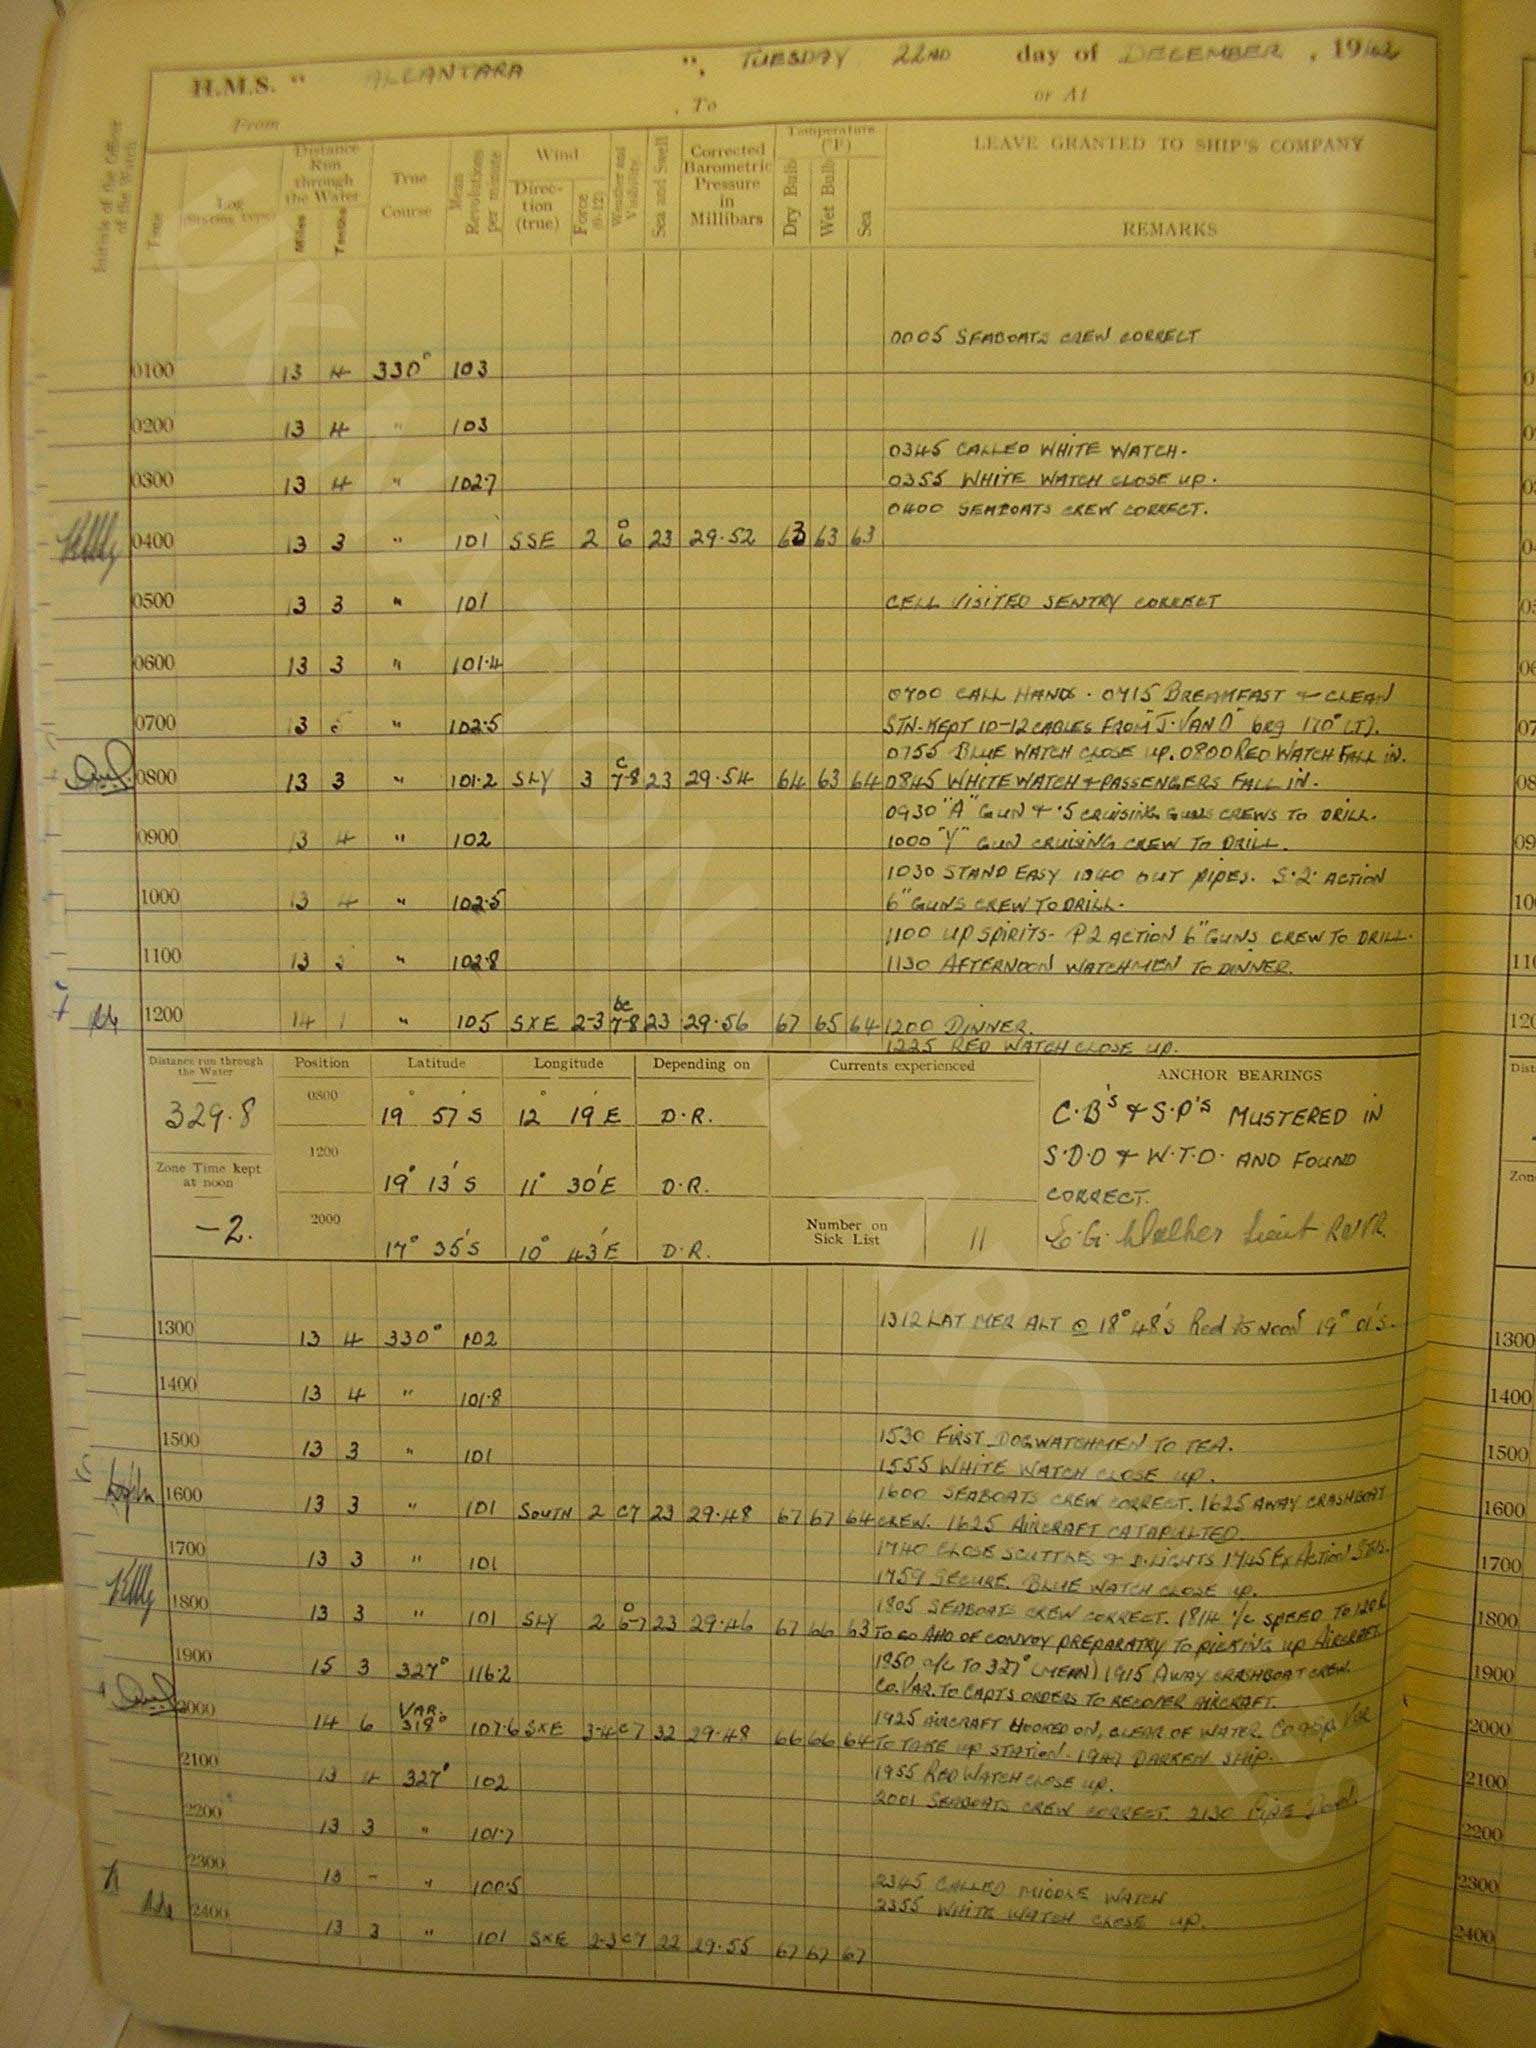 H.M.S. " ALCANTARA ", TUESDAY 22ND day of DECEMBER, 1942
From , To or At
Initials of the Officer of the Watch
Time
Log
Distance Run through the Water
Miles
Tenths
True Course
Mean Revolutions per minute
Wind
Direction (true)
Force (0-12)
Weather and Visibility
Sea and Swell
Corrected Barometric Pressure in Millibars
Temperature (°F)
Dry Bulb
Wet Bulb
Sea
LEAVE GRANTED TO SHIP'S COMPANY
REMARKS
0005 SEABOATS CREW CORRECT
0100 13 4 330° 103
0200 13 4 " 103
0345 CALLED WHITE WATCH.
0300 13 4 " 102.7 0355 WHITE WATCH CLOSE UP.
0400 SEABOATS CREW CORRECT.
0400 13 3 " 101 SSE 2 o 6 23 29.52 63 63 63
0500 13 3 " 101 CELL VISITED SENTRY CORRECT
0600 13 3 " 101.4
0700 CALL HANDS. 0715 BREAKFAST & CLEAN
0700 13 " 102.5 STN. KEPT 10-12 CABLES FROM "J. VAN D" brg 170°
0755 BLUE WATCH CLOSE UP. 0800 RED WATCH FALL IN.
0800 13 3 " 101.2 SLY 3 c 7-8 23 29.54 64 63 64 0845 WHITE WATCH & PASSENGERS FALL IN.
0930 "A" GUN & .5 CRUISING GUNS CREWS TO DRILL.
0900 13 4 " 102 1000 "Y" GUN CRUISING CREW TO DRILL.
1030 STAND EASY 1040 OUT PIPES. S.2. ACTION
1000 13 4 " 102.5 6" GUNS CREW TO DRILL.
1100 UP SPIRITS- P2 ACTION 6" GUNS CREW TO DRILL.
1100 13 " 102.8 1130 AFTERNOON WATCHMEN TO DINNER.
1200 14 1 " 105 SXE 2-3 bc 7-8 23 29.56 67 65 64 1200 DINNER.
1225 RED WATCH CLOSE UP.
Distance run through the Water
329.8
Zone Time kept at noon
-2.
Position Latitude Longitude Depending on
0800 19° 57'S 12° 19'E D.R.
1200 19° 13'S 11° 30'E D.R.
2000 17° 35'S 10° 43'E D.R.
Currents experienced
Number on Sick List 11
ANCHOR BEARINGS
C.B's & S.P's MUSTERED IN
S.D.O & W.T.O. AND FOUND
CORRECT.
E.G. Walker Lieut RNVR.
1312 LAT MER ALT 18° 48'S Red to NOON 19° 01'S.
1300 13 4 330° 102
1400 13 4 " 101.8
1530 FIRST DOGWATCHMEN TO TEA.
1500 13 3 " 101 1555 WHITE WATCH CLOSE UP.
1600 SEABOATS CREW CORRECT. 1625 AWAY CRASHBOAT
1600 13 3 " 101 SOUTH 2 C7 23 29.48 67 67 64 CREW. 1625 AIRCRAFT CATAPULTED.
1740 CLOSE SCUTTLES & D.LIGHTS 1745 EX ACTION STNS.
1700 13 3 " 101 1759 SECURE. BLUE WATCH CLOSE UP.
1805 SEABOATS CREW CORRECT. 1814 i/c SPEED TO 120R
1800 13 3 " 101 SLY 2 o 6-7 23 29.46 67 66 63 TO GO AHD OF CONVOY PREPARATRY TO PICKING UP AIRCRAFT.
1850 a/c TO 327° (MEAN) 1915 AWAY CRASHBOAT CREW.
1900 15 3 327° 116.2 CO. VAR. TO CAPTS ORDERS TO RECOVER AIRCRAFT.
1925 AIRCRAFT HOOKED ON, CLEAR OF WATER. Co & Sp. Var
2000 14 6 VAR. 318° 107.6 SXE 3-4 C7 32 29.48 66 66 64 TO TAKE UP STATION. DARKEN SHIP.
1955 RED WATCH CLOSE UP.
2100 13 4 327° 102
2001 SEABOATS CREW CORRECT. 2130 Pipe Down.
2200 13 3 " 101.7
2300 13 - " 100.5
2345 CALLED MIDDLE WATCH
2355 WHITE WATCH CLOSE UP.
2400 13 3 " 101 SXE 2-3 C7 22 29.55 67 67 67
1300
1400
1500
1600
1700
1800
1900
2000
2100
2200
2300
2400